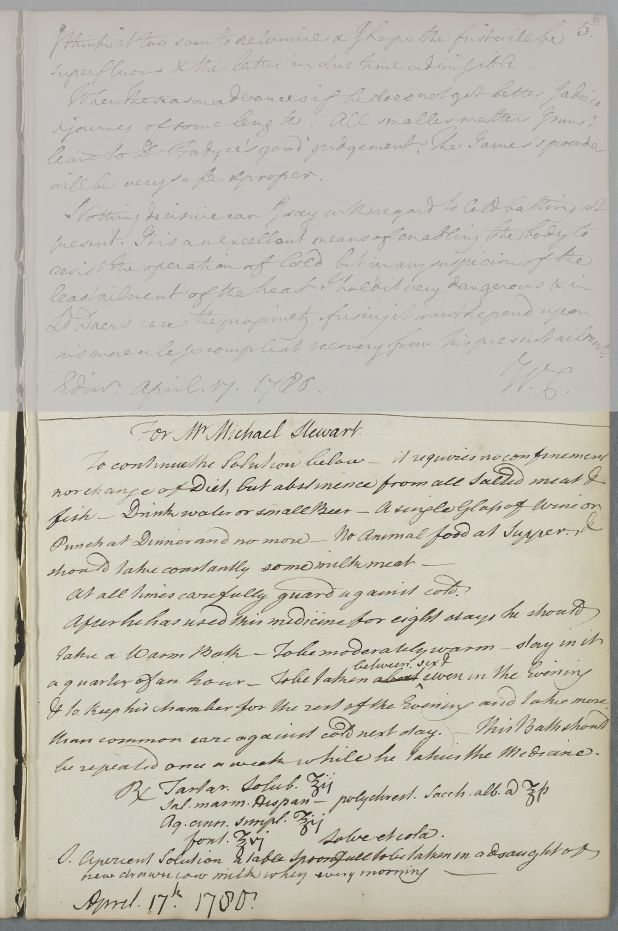 5
I think it too soon to determine & I hope the first will be
superfluous & the latter in due time admissible.
When the season advances if he does not get better I advise
a journey of some length. All smaller matters I must
leave to Dr Fadyce's good judgement. The James's powder
will be very safe & proper.
Nothing decisive can I say with regard to Cold bathing at
present. It is an excellent means of enabling the body to
resist the operation of Cold but in any suspicion of the
least ailment of the heart I hold it very dangerous & in
Ld Daer's case the propriety of using it must depend upon
his more or less compleat recovery from his present ailments
Edinr. April. 17. 1780. W.C.
For Mr Michael Stewart.
To continue the Solution below – it requires no confinement
nor change of Diet, but abstinence from all Salted meat &
fish – Drink water or small Beer – A single Glass of Wine or
Punch at Dinner and no more – No Animal food at Supper. &
should take constantly some milk meat –
At all times carefully guard against cold.
After he has used this medicine for eight days he should
take a Warm Bath – To be moderately warm – stay in it
a quarter of an hour – To be taken between six & seven in the Evening
& to keep his chamber for the rest of the Evening and take more
than common care against cold next day. – This Bath should
be repeated once a week while he takes the Medicine.
Rx Tartar. Solub. ℥ij
Sal. marin. Hispan – polychrest. Sacch. alb. a ℥ß
Aq. cinn. simpl. ℥ij
font. ℥vj Solve et cola.
S. Aperient Solution a table spoonfull to be taken in a draught of
new drawn cow milk whey every morning
April. 17th. 1780.